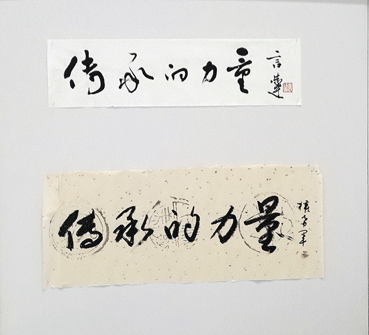 传承的力量
言蓮
传承的力量